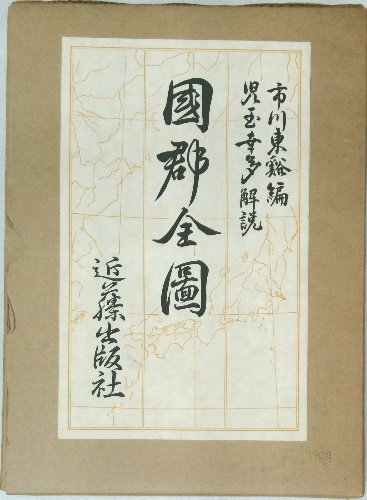 市川東谿編
児玉幸多解説
國郡全圖
近藤出版社